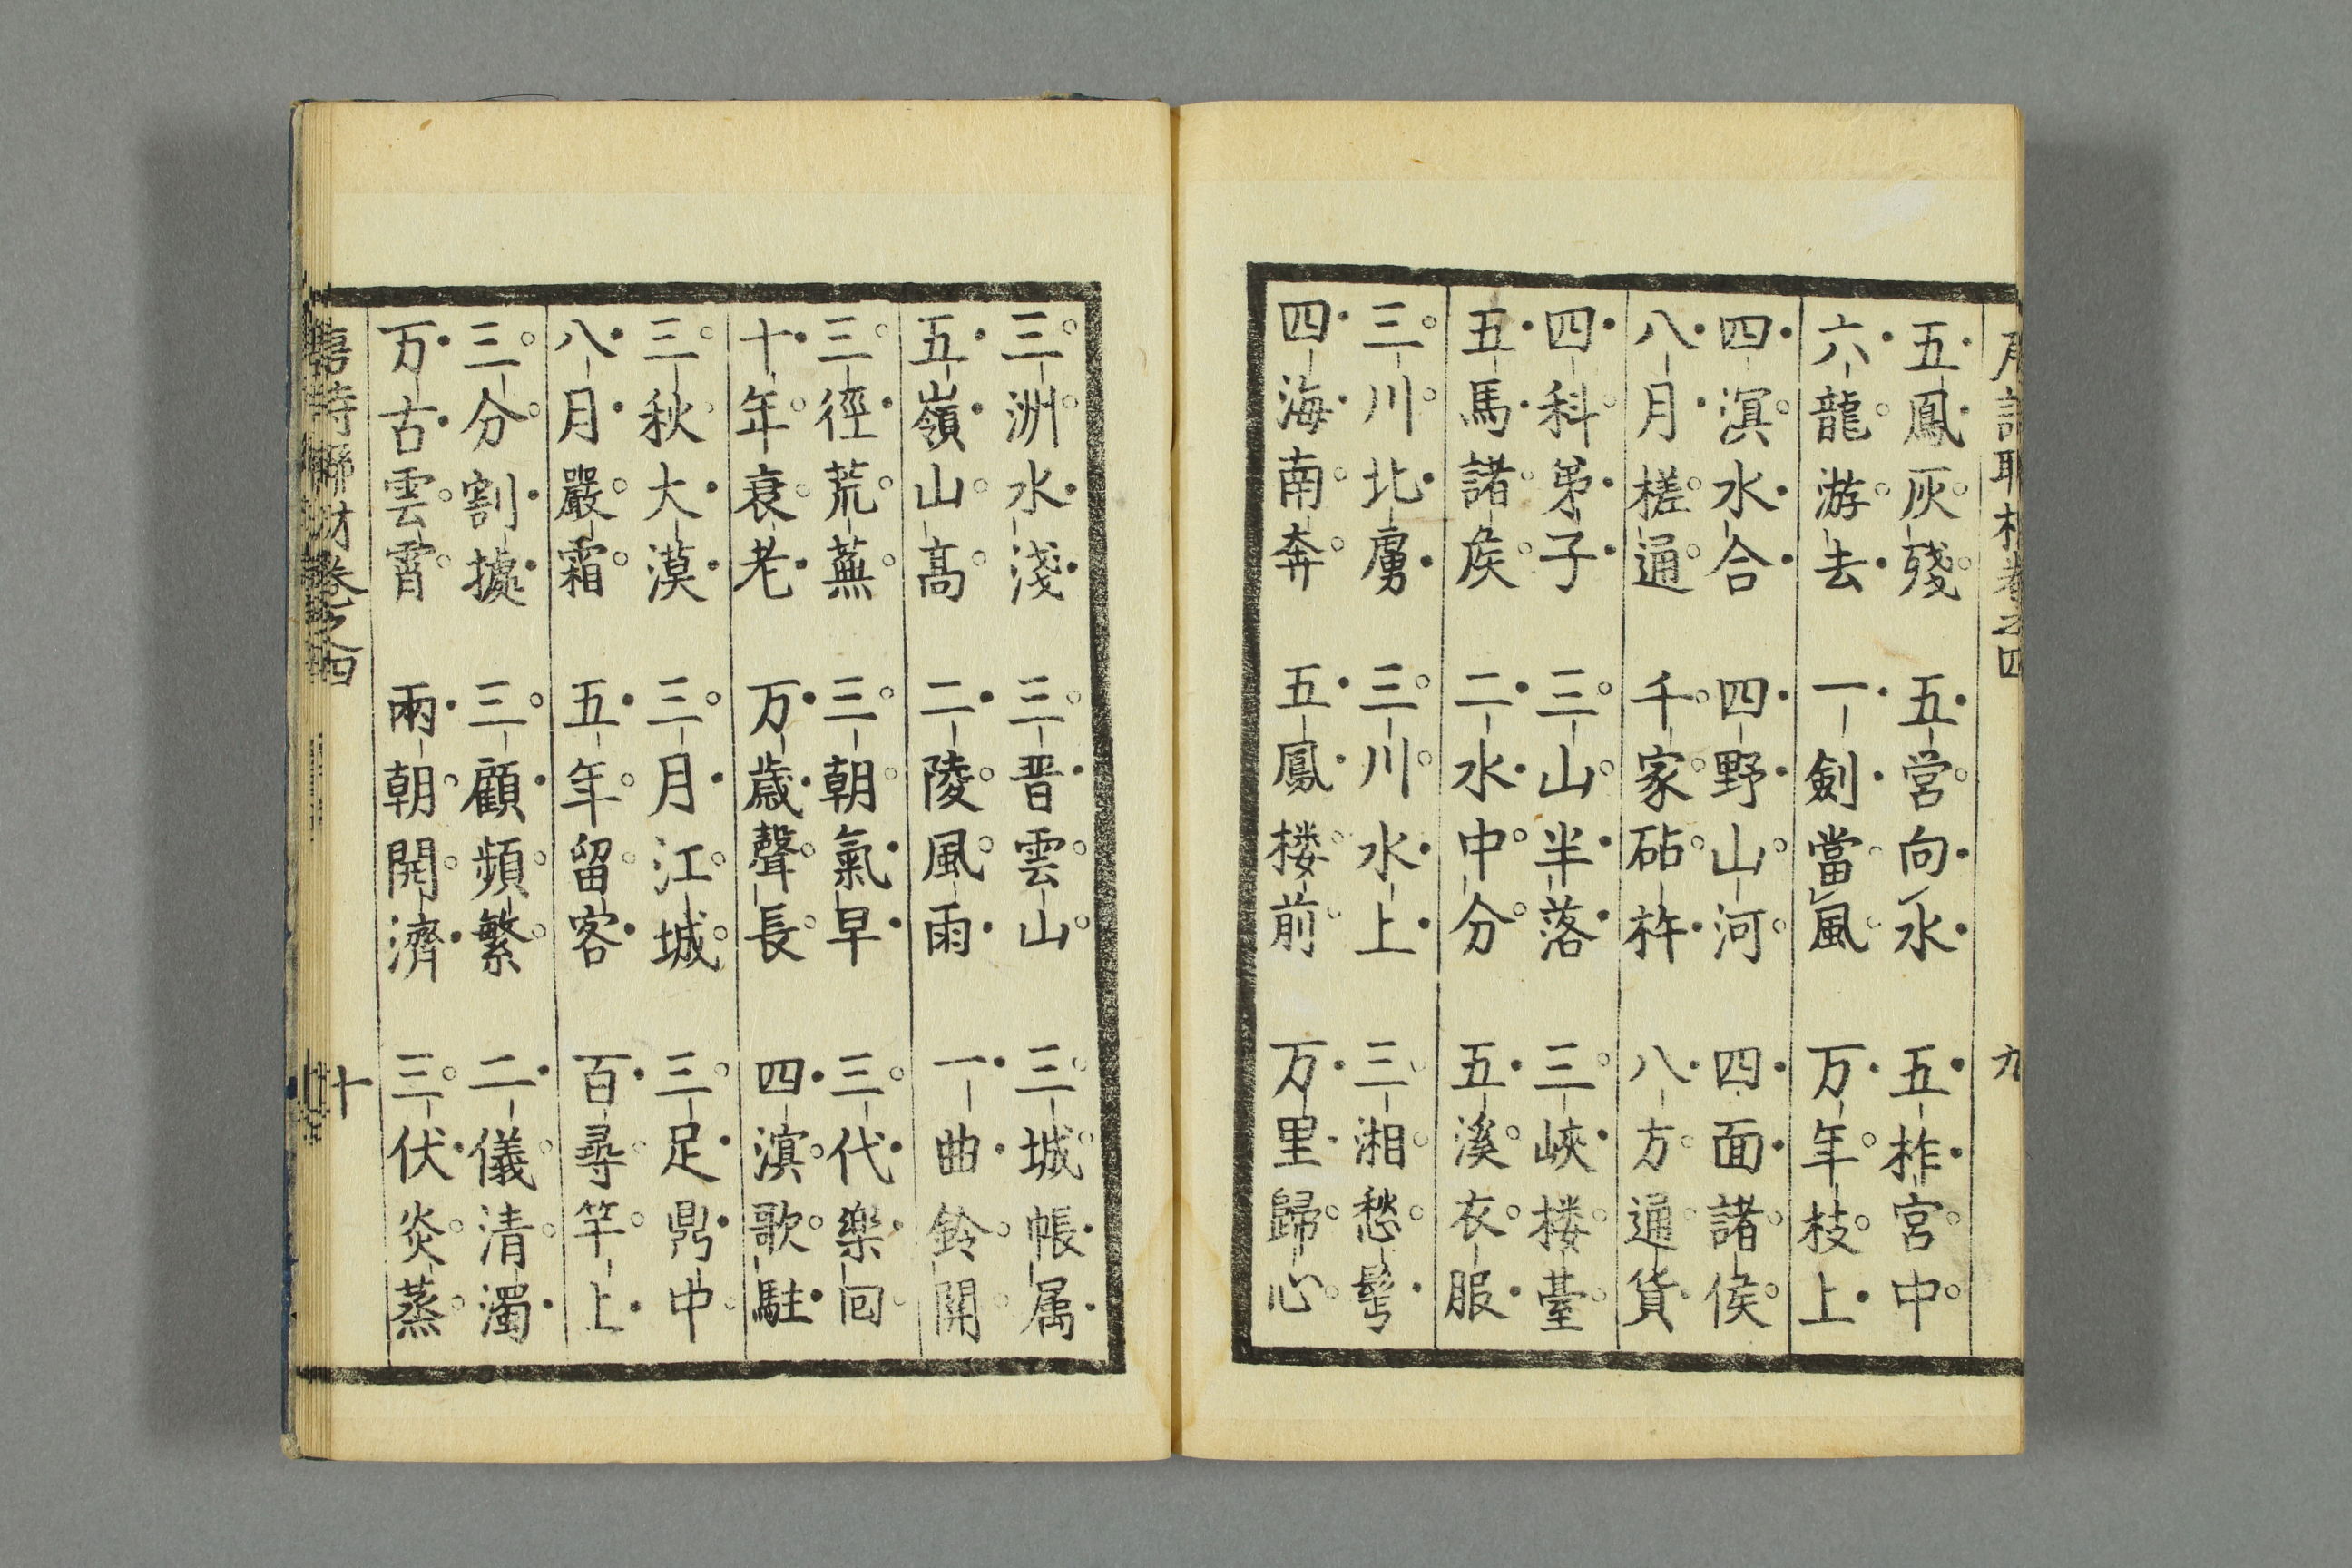 五鳳灰殘 五営向水 五柞宮中
六龍游去 一劍當風 万年枝上
四溟水合 四野山河 四面諸侯
八月槎通 千家砧杵 八方通貨
四科弟子 三山半落 三峽楼䑓
五馬諸侯 二水中分 五溪衣服
三川北虜 三川水上 三湘愁鬂
四海南奔 五鳳楼前 万里歸心
九
三洲水淺 三晋雲山 三城帳属
五嶺山髙 二陵風雨 一曲鈴開
三徑荒蕪 三朝氣早 三代樂回
十年衰老 万歳聲長 四溟歌駐
三秋大漠 三月江城 三足鼎中
八月嚴霜 五年留客 百尋竿上
三分割據 三顧頻繁 二儀清濁
万古雲霄 兩朝開濟 三伏炎蒸
唐詩聯材巻之四 十